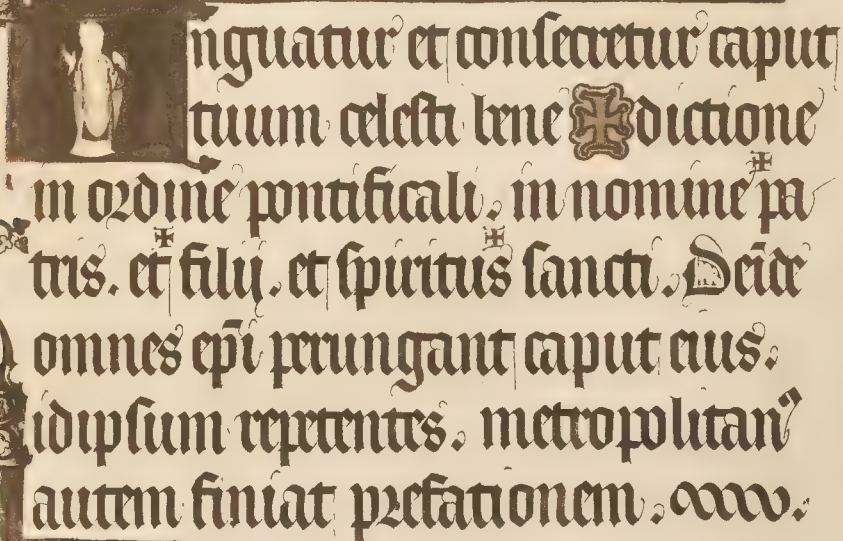 Unguatur et consecretur caput
tuum celesti bene ✠ dictione
in ordine pontificali. in nomine ✠ pa
tris. et ✠ filij. et spiritus ✠ sancti. Deīde
omnes ep̄i perungant caput eius.
idipsum repetentes. metropolitanꝰ
autem finiat prefationem.